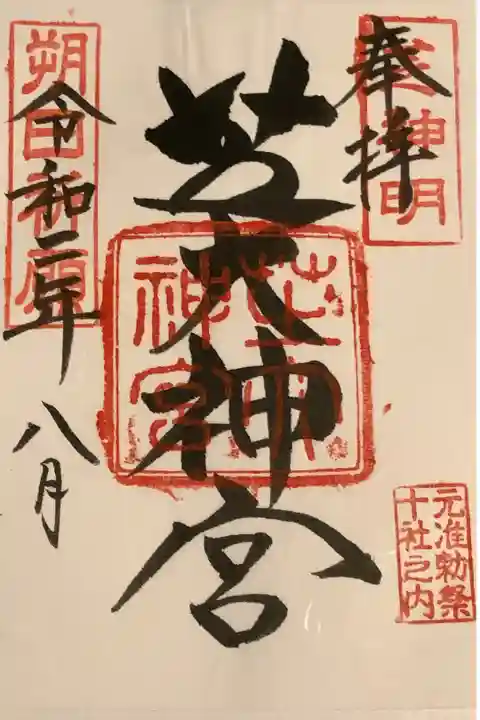 奉拝
芝神明
元准勅祭
十社之内
芝大神宮
芝大
神宮
令和二年
八月
朔日祈願